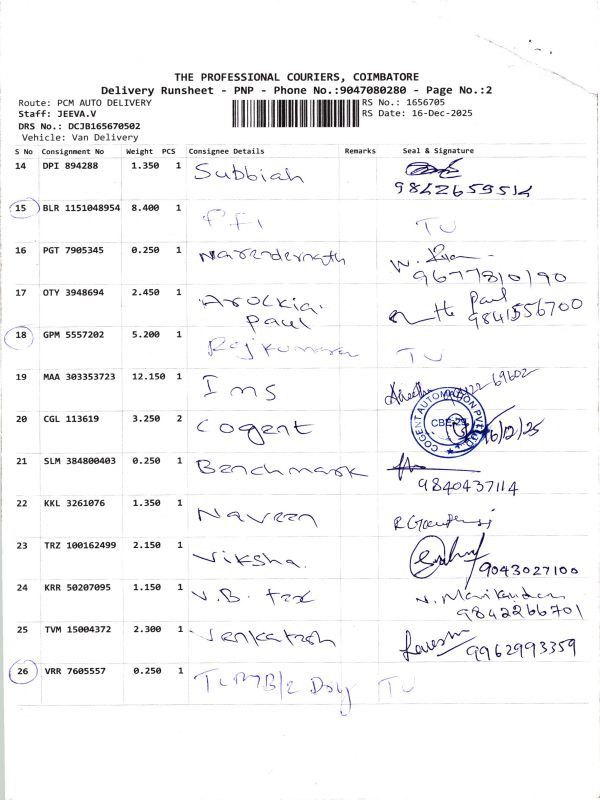 THE PROFESSIONAL COURIERS, COIMBATORE
Delivery Runsheet - PNP - Phone No.:9047080280 - Page No.:2
Route: PCM AUTO DELIVERY RS No.: 1656705
Staff: JEEVA.V RS Date: 16-Dec-2025
DRS No.: DCJB165670502
Vehicle: Van Delivery
S No Consignment No Weight PCS Consignee Details Remarks Seal & Signature
14 DPI 894288 1.350 1 Subbiah
9842659514
15 BLR 1151048954 8.400 1 TU
16 PGT 7905345 0.250 1 Narendernath
9677810190
17 OTY 3948694 2.450 1 Arockia. Paul
Paul 9841556700
18 GPM 5557202 5.200 1 Rajkumar TU
19 MAA 303353723 12.150 1 Ims
20 CGL 113619 3.250 2 Cogent COGENT AUTOMATION PVT LTD CBE 16/12/25
21 SLM 384800403 0.250 1 Benchmark
9840437114
22 KKL 3261076 1.350 1 Naveen
23 TRZ 100162499 2.150 1 Viksha.
9043027100
24 KRR 50207095 1.150 1 V.B. tex N. Manikandan
9842266701
25 TVM 15004372 2.300 1 Venkatesh
9962993359
26 VRR 7605557 0.250 1 TU